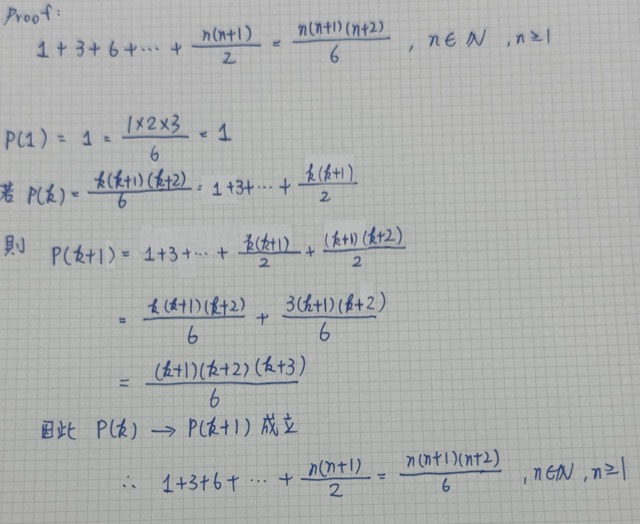 Proof:
1 + 3 + 6 + ⋯ + n(n+1)/2 = n(n+1)(n+2)/6 , n ∈ ℕ , n ≥ 1
P(1) = 1 = 1×2×3/6 = 1
若 P(k) = k(k+1)(k+2)/6 = 1+3+⋯+ k(k+1)/2
則 P(k+1) = 1+3+⋯+ k(k+1)/2 + (k+1)(k+2)/2
= k(k+1)(k+2)/6 + 3(k+1)(k+2)/6
= (k+1)(k+2)(k+3)/6
因此 P(k) → P(k+1) 成立
∴ 1+3+6+ ⋯ + n(n+1)/2 = n(n+1)(n+2)/6 , n∈ℕ, n≥1